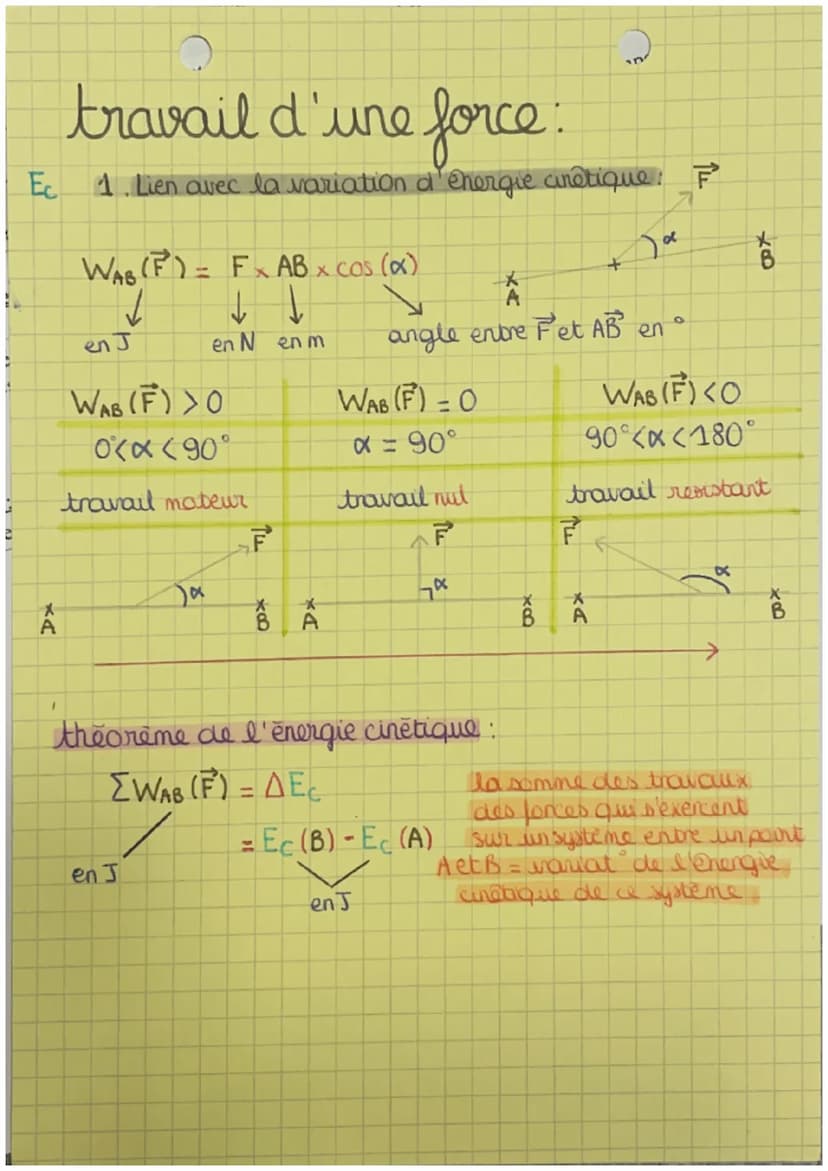 travail d'une force :
Ec 1. Lien avec la variation d'énergie cinétique : F→
W_AB (F→) = F x AB x cos (α)
α
A B
en J en N en m angle entre F→ et AB→ en °
W_AB (F→) > 0 W_AB (F→) = 0 W_AB (F→) < 0
0°<α < 90° α = 90° 90°<α<180°
travail moteur travail nul travail résistant
F→ F→ F→
α α α
A B A B A B
théorème de l'énergie cinétique :
ΣW_AB (F→) = ΔEc
= Ec (B) - Ec (A)
en J
en J
la somme des travaux
des forces qui s'exercent
sur un système entre un point
A et B = variat° de l'énergie
cinétique de ce système.